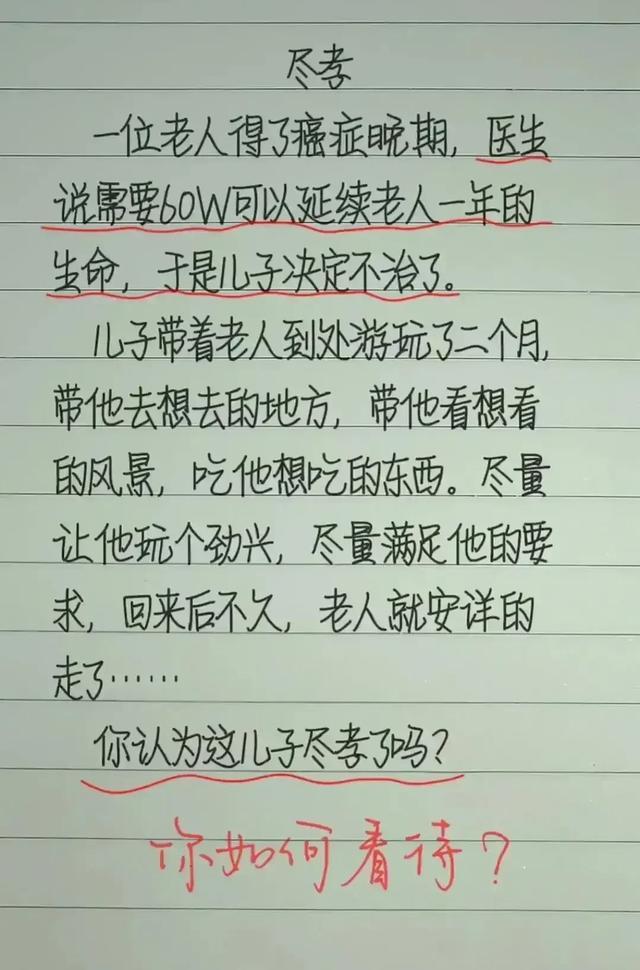 尽孝
一位老人得了癌症晚期，医生
说需要60W可以延续老人一年的
生命，于是儿子决定不治了。
儿子带着老人到处游玩了二个月，
带他去想去的地方，带他看想看
的风景，吃他想吃的东西。尽量
让他玩个劲兴，尽量满足他的要
求，回来后不久，老人就安详的
走了……
你认为这儿子尽孝了吗？
你如何看待？